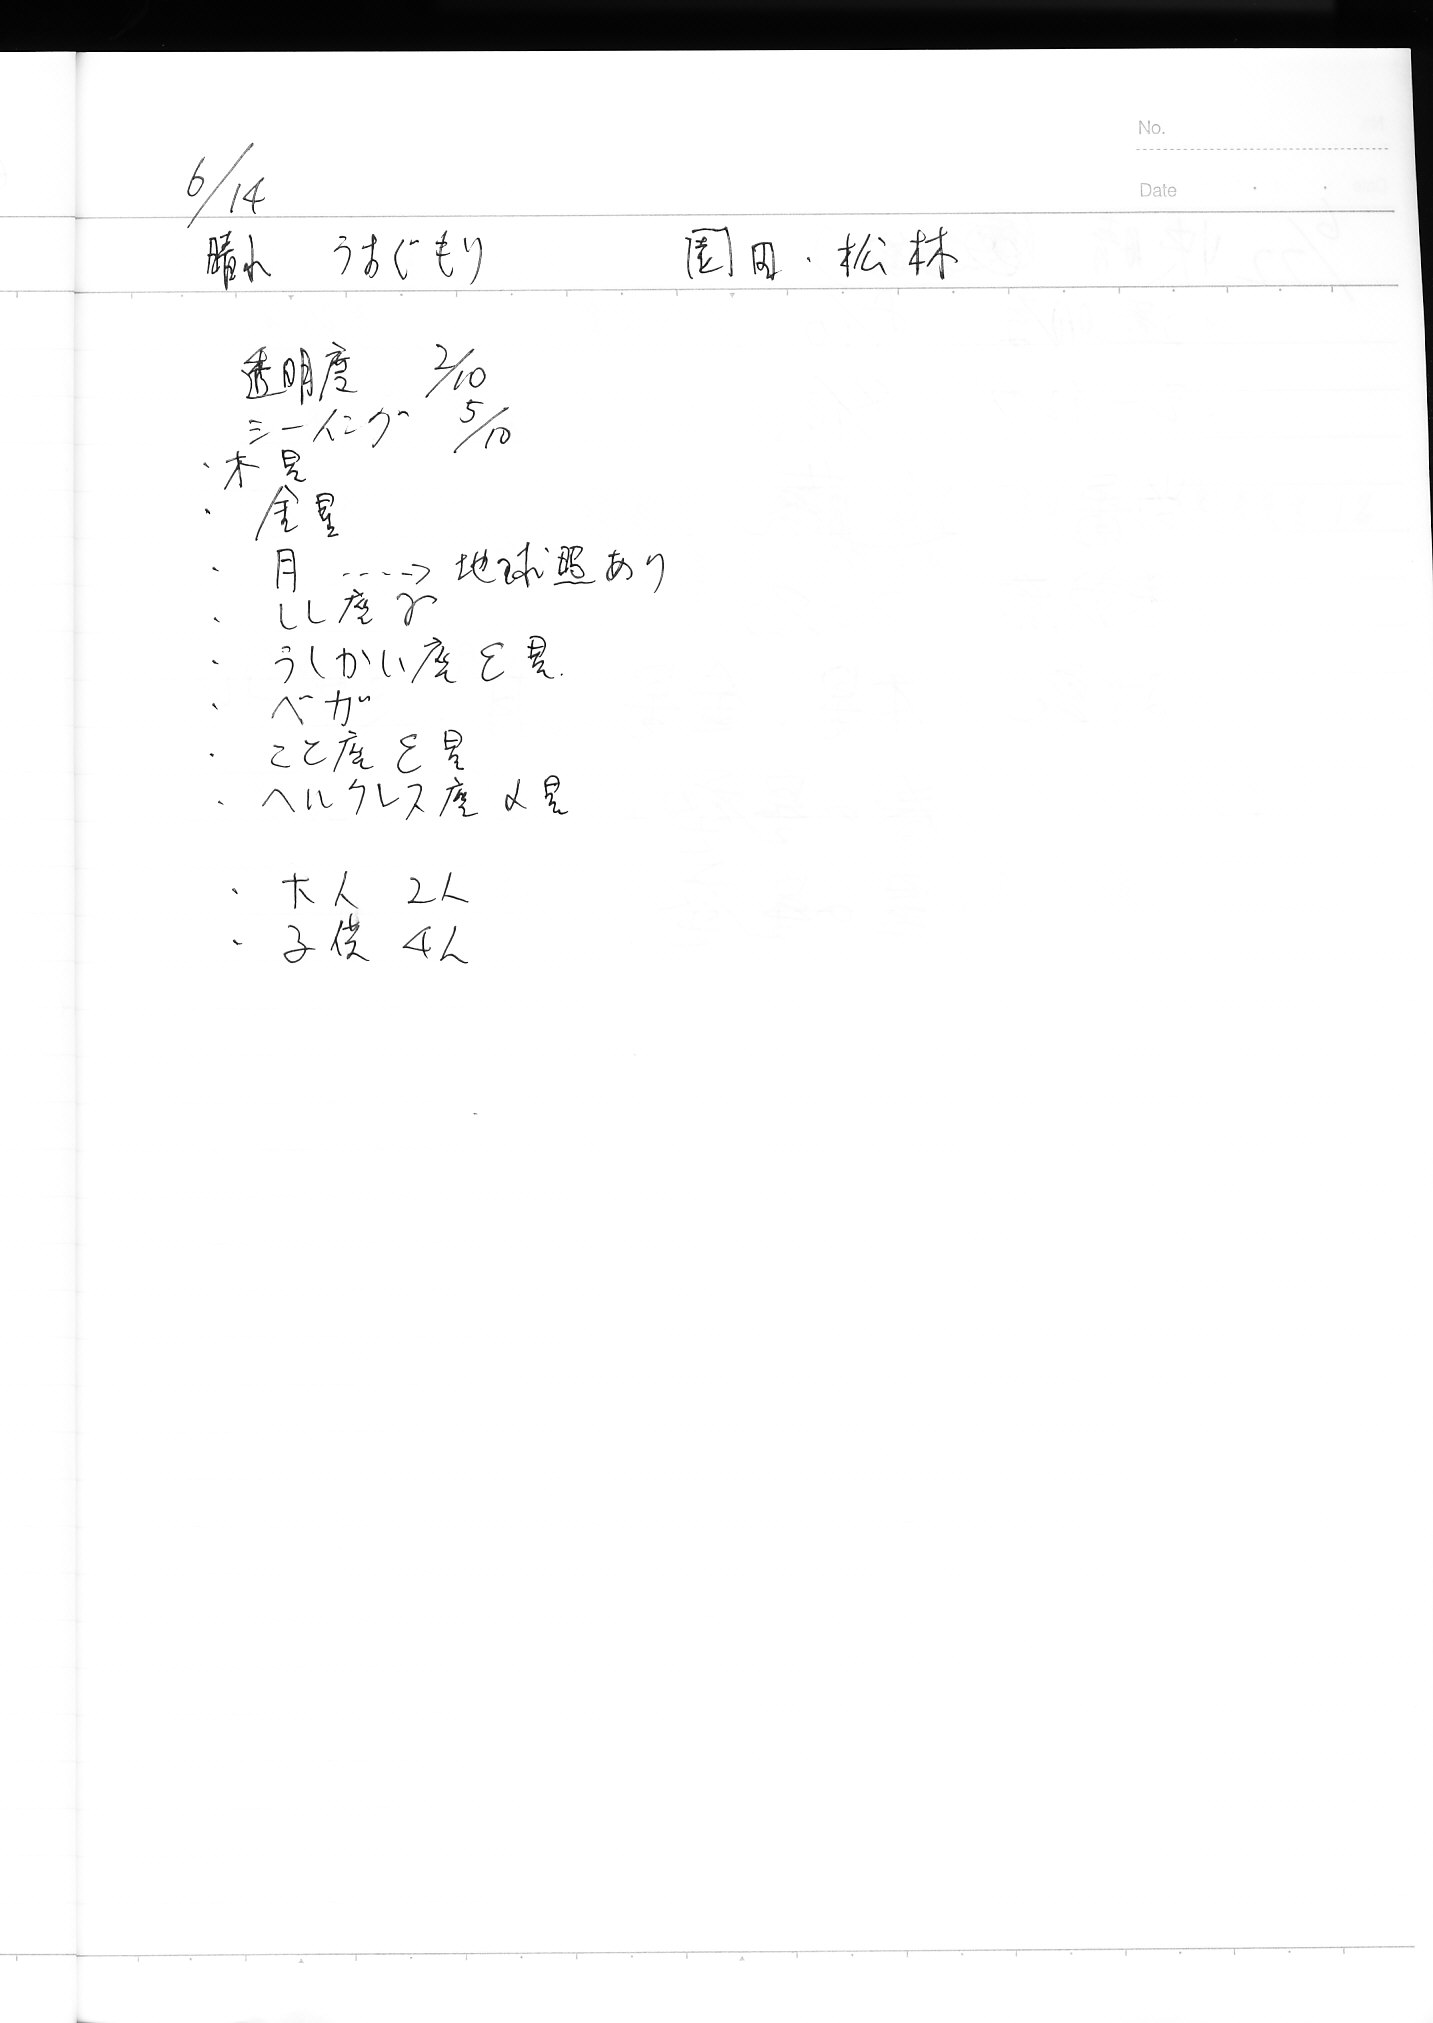 No.
Date
6/14
晴れ うすぐもり 園田・松林
透明度 2/10
シーイング 5/10
・木星
・金星
・月 ‥‥→ 地球照あり
・しし座γ
・うしかい座ε星.
・ベガ
・こと座ε星
・ヘルクレス座α星
・大人 2人
・子供 4人